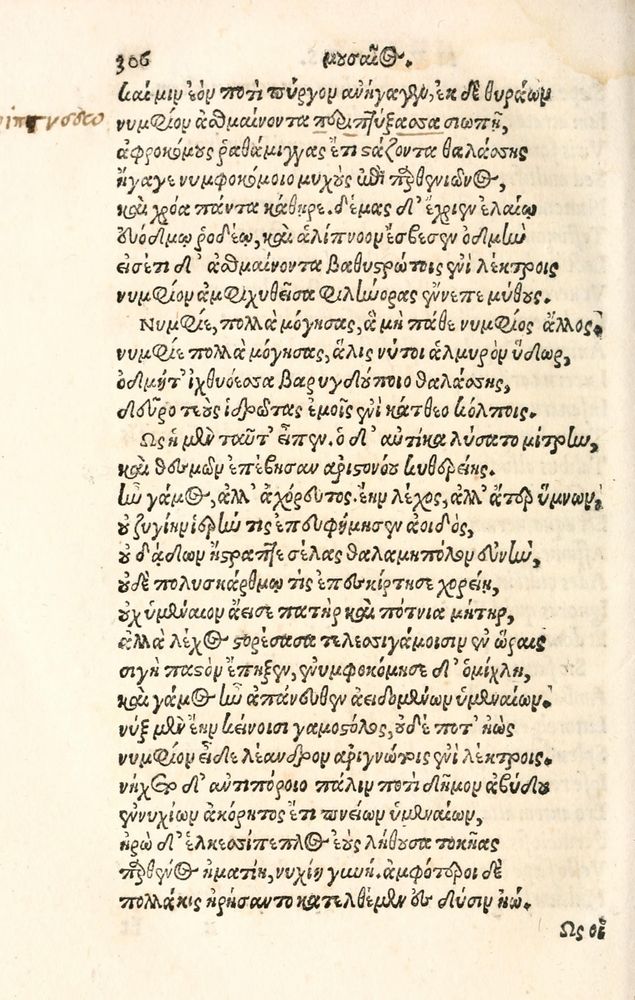 306 ΜΟΥΣΑΙΟΣ.
καί μιν ἑὸν ποτὶ πύργον ἀνήγαγεν, ἐκ δὲ θυράων
νυμφίον ἀσθμαίνοντα περιπτύξασα σιωπῇ,
ἀφροκόμους ῥαθάμιγγας ἔτι στάζοντα θαλάσσης
ἤγαγε νυμφοκόμοιο μυχοὺς ἐπὶ παρθενιῶνος,
καὶ χρόα πάντα κάθηρε. δέμας δ' ἔχριεν ἐλαίῳ
εὐόδμῳ ῥοδέῳ, καὶ ἁλίπνοον ἔσβεσεν ὀδμήν
εἰσέτι δ' ἀσθμαίνοντα βαθυστρώτοις ἐνὶ λέκτροις
νυμφίον ἀμφιχυθεῖσα φιλήνορας ἔννεπε μύθους.
Νυμφίε, πολλὰ μόγησας, ἃ μὴ πάθε νυμφίος ἄλλος,
νυμφίε πολλὰ μόγησας, ἅλις νύ τοι ἁλμυρὸν ὕδωρ,
ὀδμή τ' ἰχθυόεσσα βαρυγδούποιο θαλάσσης,
δεῦρο τεοὺς ἱδρῶτας ἐμοῖς ἐνὶ κάτθεο κόλποις.
Ὣς ἡ μὲν ταῦτ' εἶπεν. ὁ δ' αὐτίκα λύσατο μίτρην,
καὶ θεσμῶν ἐπέβησαν ἀριστονόου κυθερείης.
ἦν γάμος, ἀλλ' ἀχόρευτος. ἔην λέχος, ἀλλ' ἄτερ ὕμνων,
οὐ ζυγίην ἥρην τις ἐπευφήμησεν ἀοιδὸς,
οὐ δᾴδων ἤστραπτε σέλας θαλαμηπόλον εὐνήν,
οὐδὲ πολυσκάρθμῳ τις ἐπεσκίρτησε χορείῃ,
οὐχ ὑμέναιον ἄεισε πατὴρ καὶ πότνια μήτηρ,
ἀλλὰ λέχος στορέσασα τελεσσιγάμοισιν ἐν ὥραις
σιγὴ παστὸν ἔπηξεν, ἐνυμφοκόμησε δ' ὀμίχλη,
καὶ γάμος ἦν ἀπάνευθεν ἀειδομένων ὑμεναίων.
νὺξ μὲν ἔην κείνοισι γαμοστόλος, οὐδέ ποτ' ἠὼς
νυμφίον εἶδε λέανδρον ἀριγνώτοις ἐνὶ λέκτροις.
νήχετο δ' ἀντιπόροιο πάλιν ποτὶ δῆμον ἀβύδου
ἐννυχίων ἀκόρητος ἔτι πνείων ὑμεναίων,
ἡρὼ δ' ἑλκεσίπεπλος ἑοὺς λήθουσα τοκῆας
παρθένος ἠματίη, νυχίη γυνή. ἀμφότεροι δὲ
πολλάκις ἠρήσαντο κατελθέμεν ἐς δύσιν ἠῶ.
Ὣς οἱ